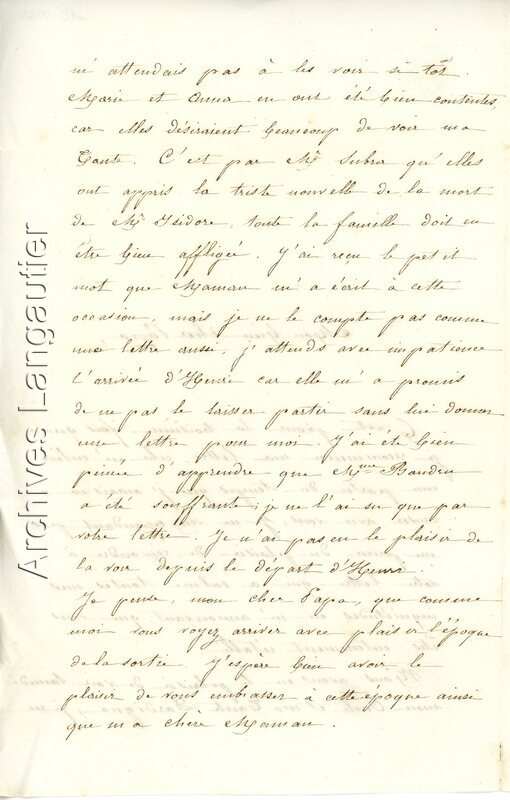 m'attendais pas à les voir si tôt.
Marie et Anna en ont été bien contentes,
car elles désiraient beaucoup de voir ma
Tante. C'est par Mr Subra qu'elles
ont appris la triste nouvelle de la mort
de Mr Isidore, toute la famille doit en
être bien affligée. J'ai reçu le petit
mot que Maman m'a écrit à cette
occasion, mais je ne le compte pas comme
une lettre aussi, j'attends avec impatience
l'arrivée d'Henri car elle m'a promis
de ne pas le laisser partir sans lui donner
une lettre pour moi. J'ai été bien
peinée d'apprendre que Mme Bandra
a été souffrante; je ne l'ai su que par
votre lettre. Je n'ai pas eu le plaisir de
la voir depuis le départ d'Henri.
Je pense, mon cher Papa, que comme
moi vous voyez arriver avec plaisir l'époque
de la sortie. J'espère bien avoir le
plaisir de vous embrasser à cette époque ainsi
que ma chère Maman.
Archives Langautier